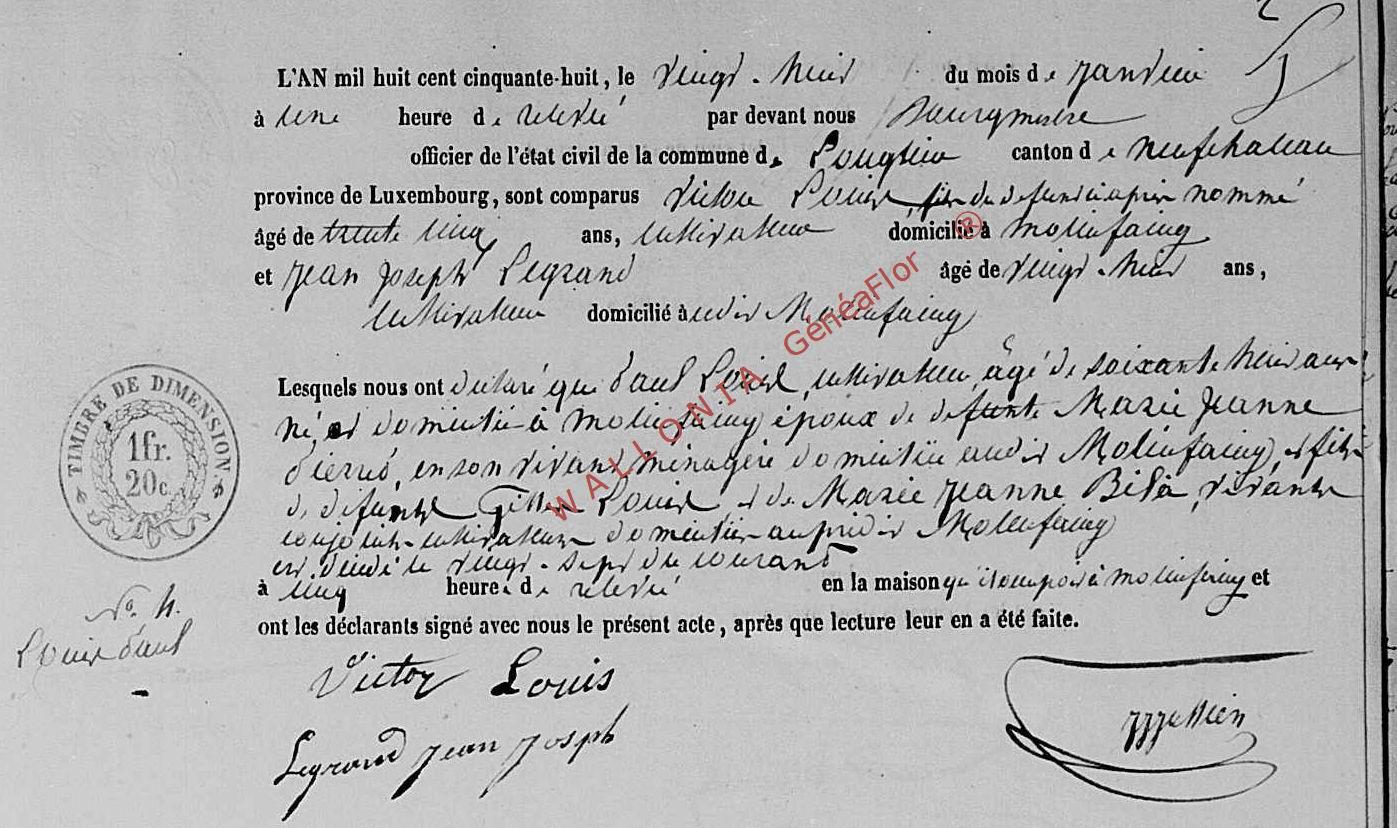 L'AN mil huit cent cinquante-huit, le vingt-neuf du mois de Janvier
à une heure de relevé par devant nous Bourgmestre
officier de l'état civil de la commune de Longlier canton de neufchateau
province de Luxembourg, sont comparus Victor Louis, fils du defunt ci après nommé
âgé de trente cinq ans, cultivateur domicilié à molinfaing
et Jean Joseph Legrand âgé de vingt-neuf ans,
cultivateur domicilié à udit Molinfaing
Lesquels nous ont déclaré que Paul Louis, cultivateur, âgé de soixante neuf ans
né, et domicilié à molinfaing époux de defunte Marie Jeanne
Pierret, en son vivant ménagère domiciliée audit Molinfaing, et fils
de defunts Louis et de Marie Jeanne vivants
conjoints cultivateurs domiciliés au prédit Molinfaing
est décédé le vingt-sept du courant
à cinq heures de relevé en la maison qu'il occupoit à molinfaing et
ont les déclarants signé avec nous le présent acte, après que lecture leur en a été faite.
TIMBRE DE DIMENSION
1fr.
20c.
No. 4.
Louis Paul
Victor Louis
Legrand Jean Joseph
WALLONIA GenéaFlor ®